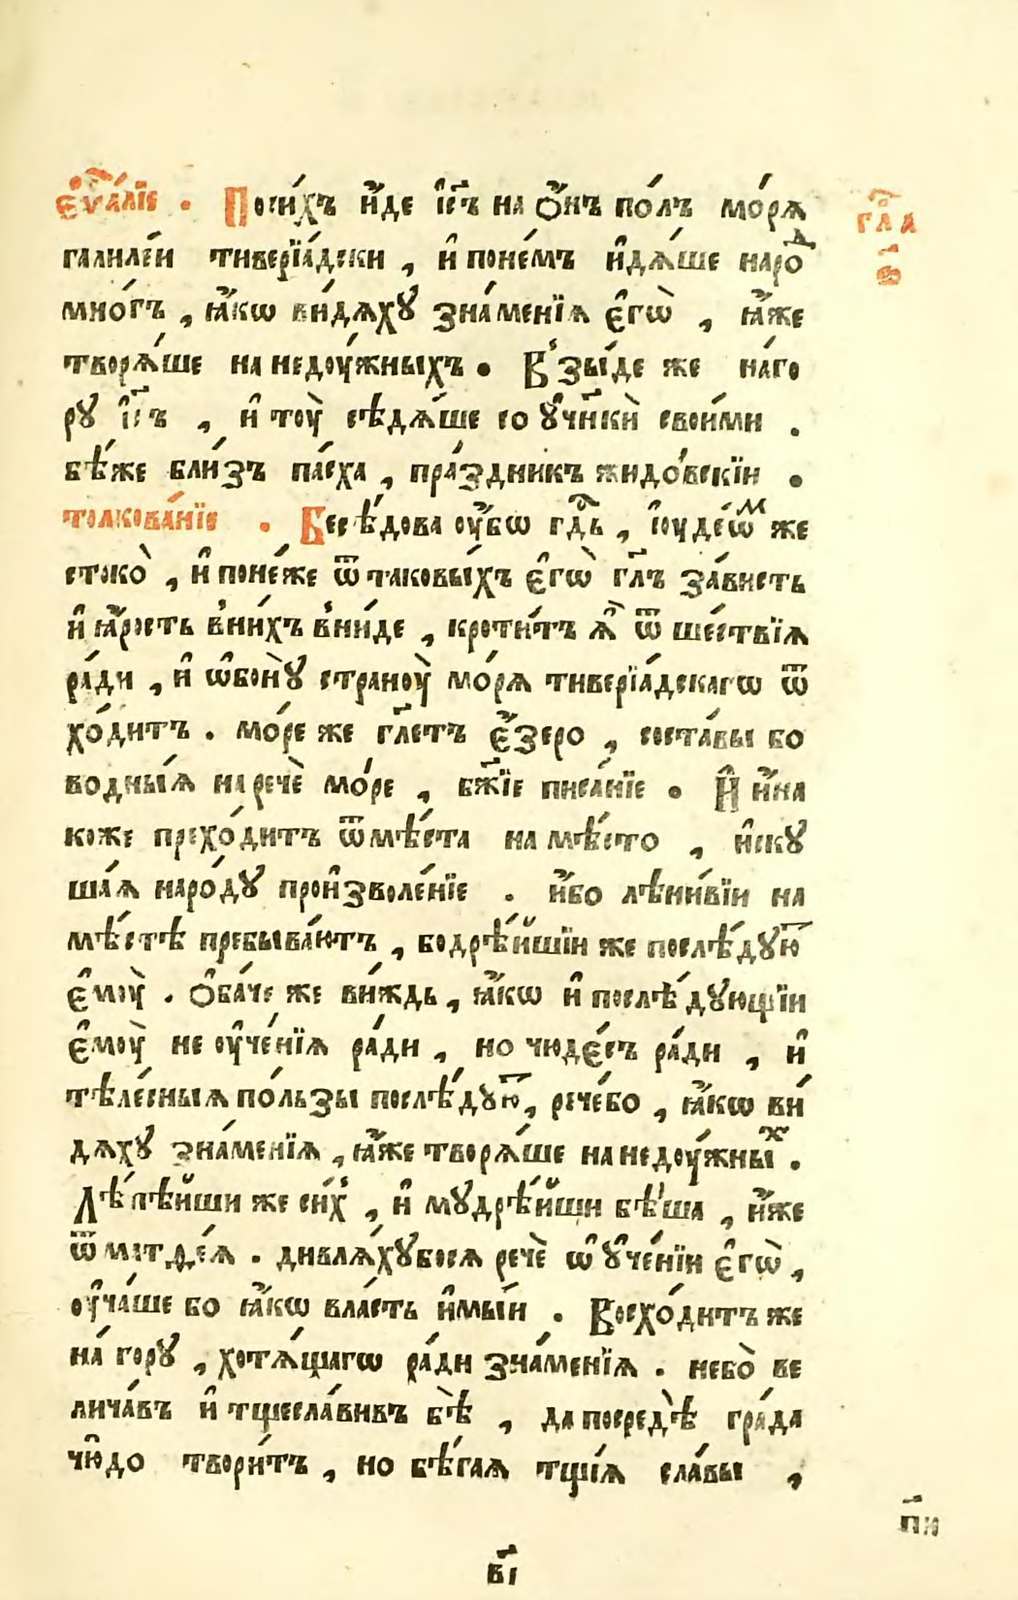 є҆ѵⷢ҇а́лїе . Поси́хъ и҆́де і҆с҃ъ на ѻ҆́нъ по́лъ мо́рѧ
гл҃а
галиле́и тиверїа́дски , и҆ поне́мъ и҆дѧ́ше наро́ⷣ
в҃і
мно́гъ , ꙗ҆́кѡ ви́дѧхꙋ зна́менїѧ є҆гѡ̀ , ꙗ҆́же
творѧ́ше на недоу́жныхъ . В̾зы́де же наго
рꙋ̀ і҆с҃ъ , и҆ тоу̀ сѣдѧ́ше со ᲂу҆чн҃кѝ свои́ми .
бѣ́же бли́зъ па́сха , пра́здникъ жидо́вскїи .
толкова́нїе . Бесѣ́дова ᲂу҆́бѡ гдⷭ҇ь , і҆ꙋде́ѡⷨ же
стоко̀ , и҆ поне́же ѿ таковы́хъ є҆гѡ̀ гл҃ъ за́висть
и҆ ꙗ҆́рость в̾ни́хъ в̾ни́де , кроти́тъ ѧ҆̀ ѿ ше́ствїѧ
ра́ди , и҆ ѡ҆бо́нꙋ страноу̀ мо́рѧ тиверїа́дскагѡ ѿ
хо́дитъ . мо́ре же гл҃етъ є҆́зеро , соста́вы бо
во́дныѧ наречѐ мо́ре , бж҃їе писа́нїе . И҆ и҆́на
коже прехо́дитъ ѿмѣ́ста на мѣ́сто , и҆скꙋ
ша́ѧ наро́дꙋ прои҆зволе́нїе . и҆́бо лѣни́вїи на
мѣ́стѣ пребыва́ютъ , бодрѣ́йшїи же послѣ́дꙋюⷮ
є҆моу̀ . Ѻ҆ба́че же ви́ждь , ꙗ҆́кѡ и҆ послѣ́дꙋющїи
є҆моу̀ не ᲂу҆че́нїѧ ра́ди , но чюде́съ ра́ди , и҆
тѣле́сныѧ по́льзы послѣ́дꙋюⷮ, рече́бо , ꙗ҆́кѡ ви́
дѧхꙋ зна́менїѧ , ꙗ҆́же творѧ́ше на недоу́жныⷯ .
Лѣ́пѣйши же си́хъ , и҆ мꙋдрѣ́йши бѣ́ша , и҆́же
ѿ матѳе́ѧ . дивлѧ́хꙋбосѧ речѐ ѡ҆ ᲂу҆че́нїи є҆гѡ̀ ,
ᲂу҆ча́ше бо ꙗ҆́кѡ вла́сть и҆мы́и . Восхо́дитъ же
на́ горꙋ , хотѧ́щагѡ ра́ди зна́менїѧ . небо̀ ве
лича́въ и҆ тщесла́вивъ бѣ̀ , да посредѣ̀ гра́да
чю́до твори́тъ , но бѣ́гаѧ тщі́ѧ сла́вы ,
п҃и
в҃і